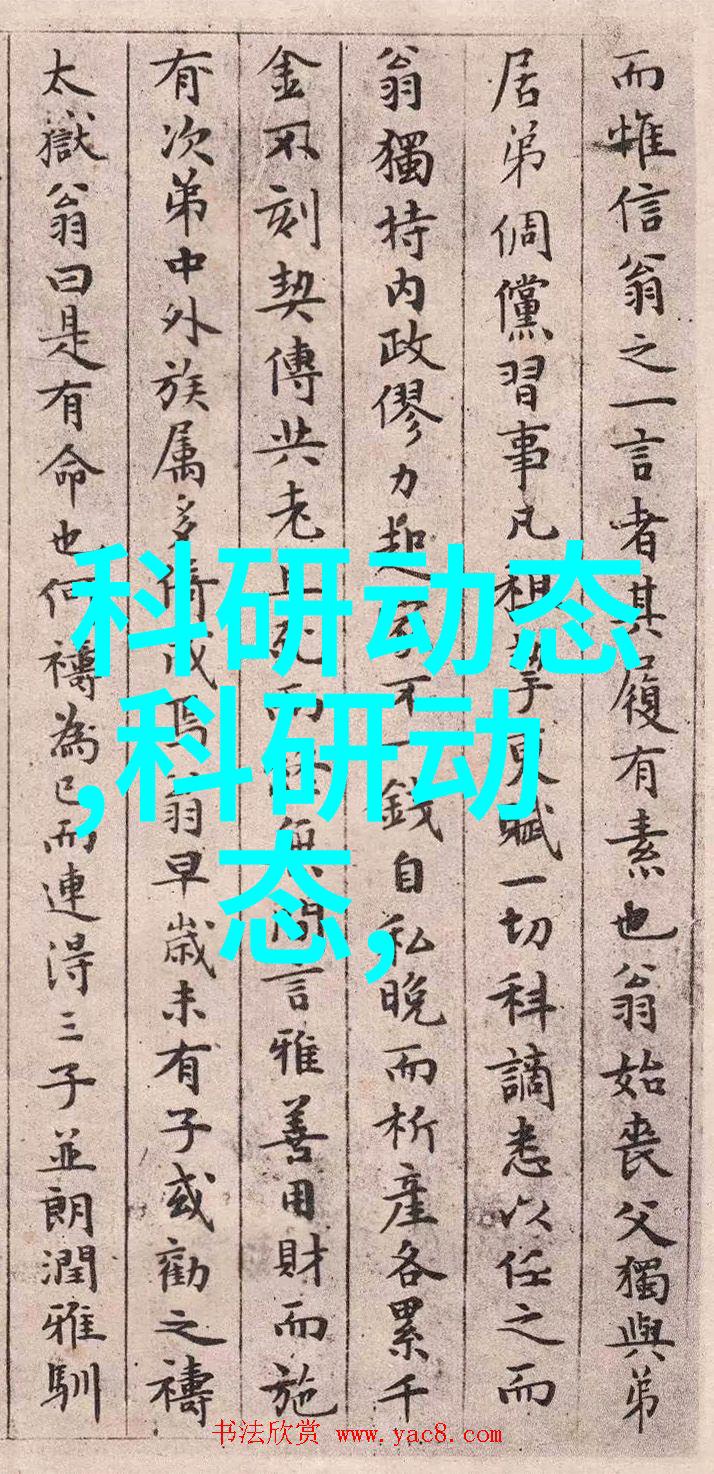 而惟信翁之一言者其履有素也翁始喪父獨與弟
居弟倜儻習事凡租挈更賦一切科謫悉以任之而
翁獨持内政僇力起家不一錢自私晚而析產各累千
金不刻契傳共老且死而無間言雅善用財而施
有次第中外族属多倚成焉翁早歲未有子或勸之禱
太嶽翁曰是有命也何禱為已而連得三子並朗潤雅馴
科研动态
,科研动
态,
书法欣赏 www.yac8.com